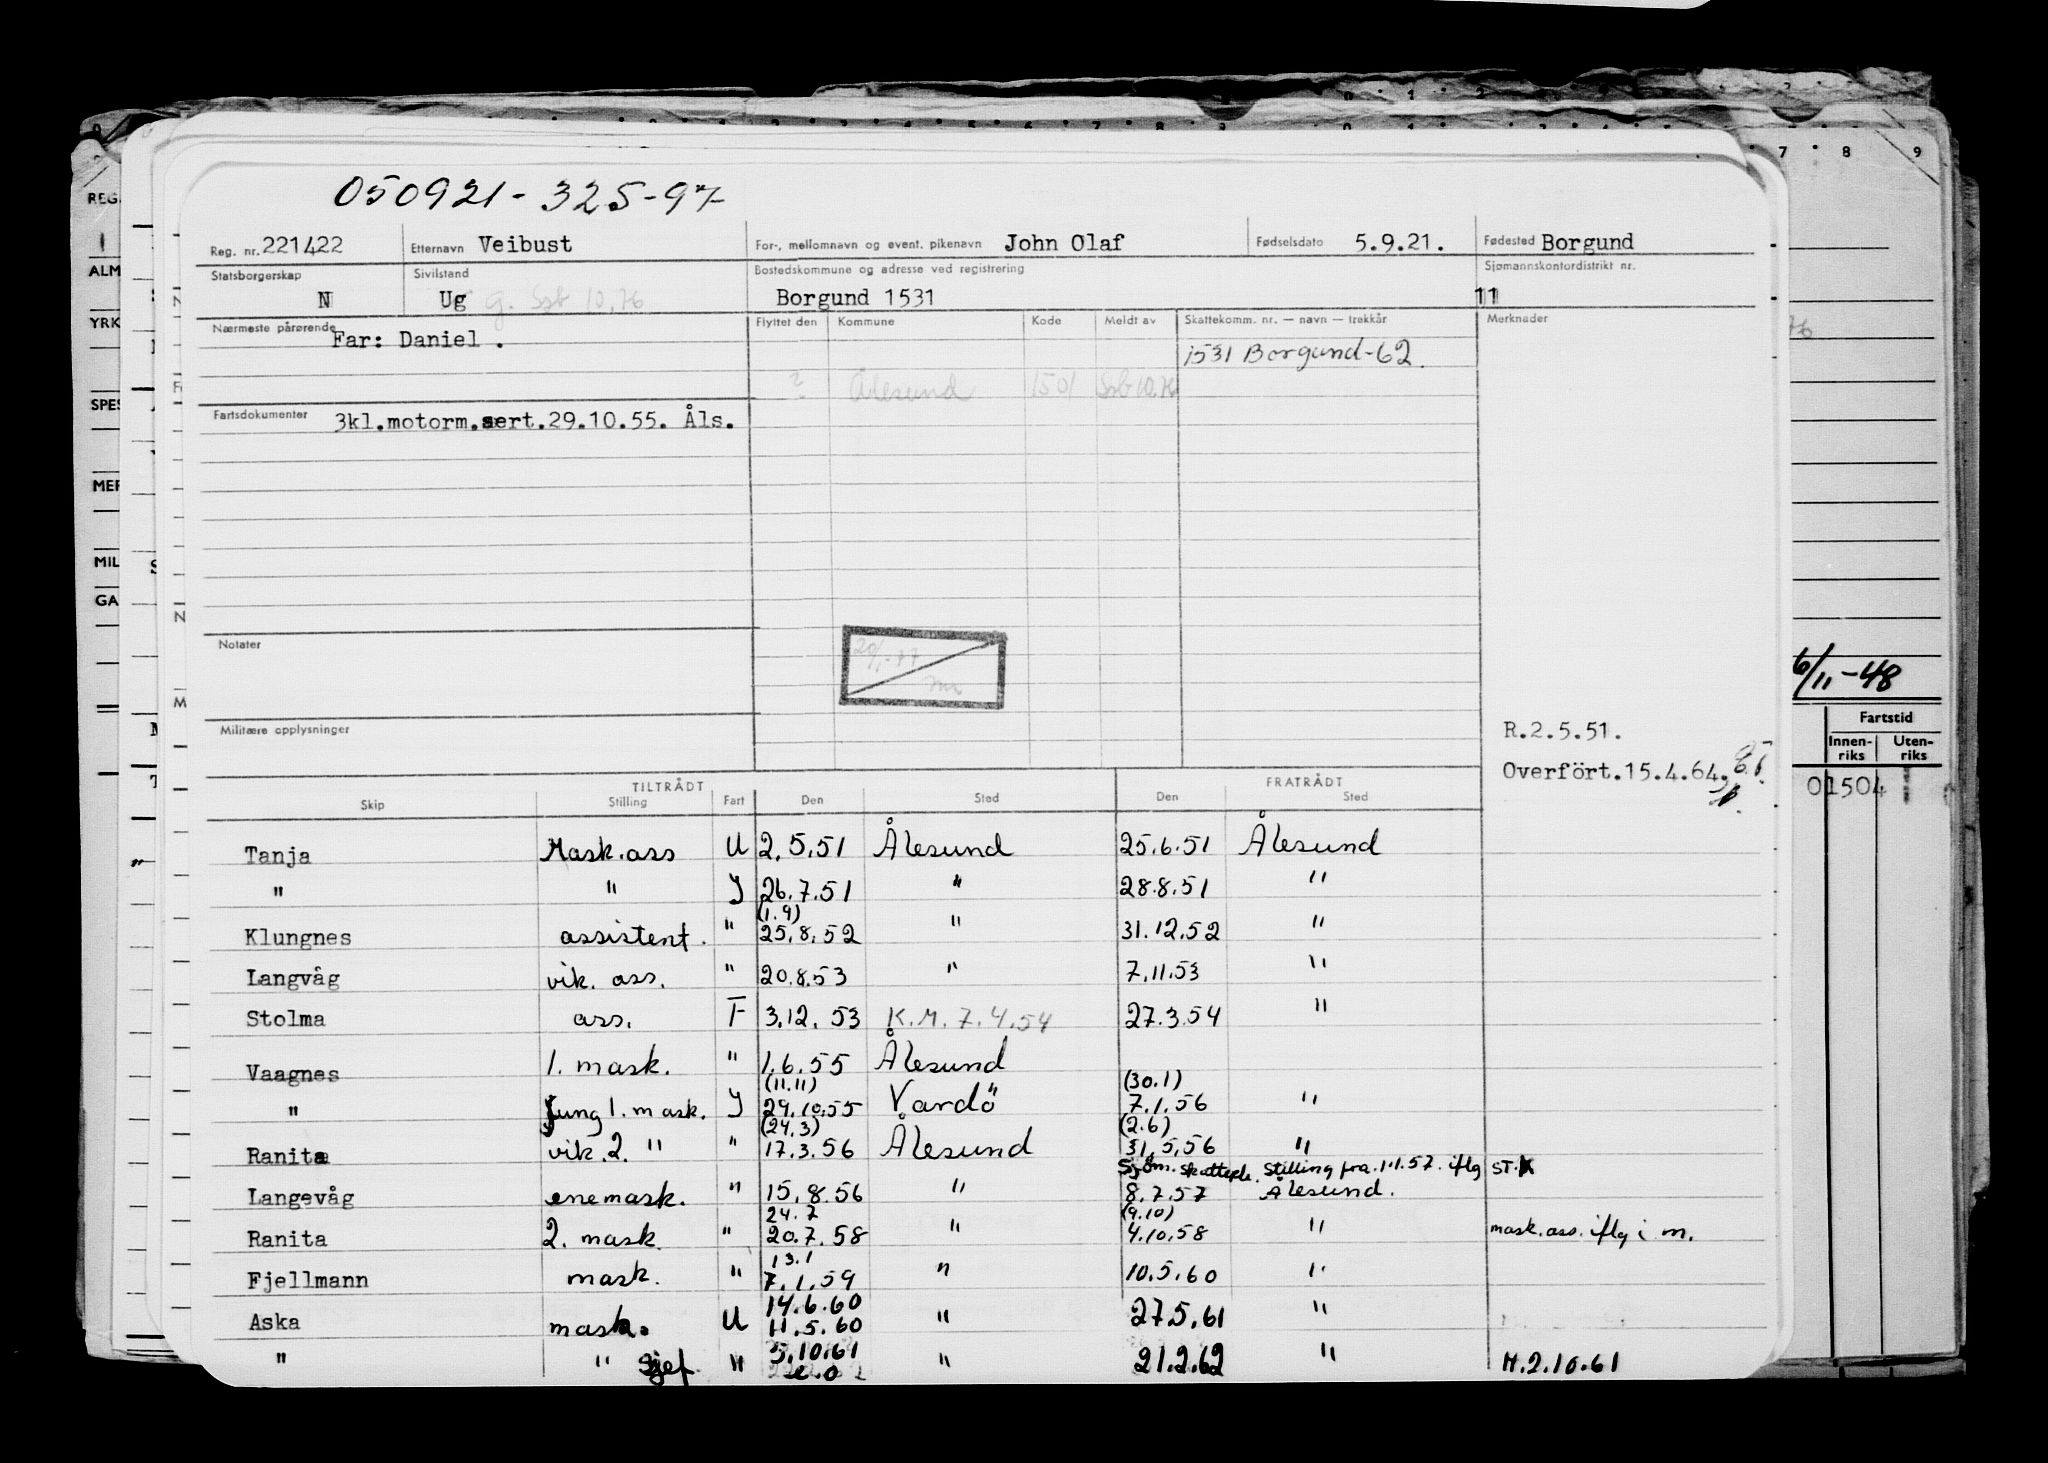 050921-325-97
Reg. nr. 221422 Etternavn Veibust For-, mellomnavn og event. pikenavn John Olaf Fødselsdato 5.9.21. Fødested Borgund
Statsborgerskap Sivilstand Bostedskommune og adresse ved registrering Sjømannskontordistrikt nr.
N Ug g. Ssb 10.76 Borgund 1531 11
Nærmeste pårørende Far: Daniel . Flyttet den Kommune Kode Meldt av Skattekomm. nr. — navn — trekkår Merknader
1531 Borgund-62.
? Ålesund 1501 Ssb 10.76
Fartsdokumenter 3kl.motorm.sert.29.10.55. Åls.
Notater
20/1-77
Militære opplysninger
R.2.5.51.
Overfört.15.4.64.
TILTRÅDT FRATRÅDT
Skip Stilling Fart Den Sted Den Sted
Tanja Mask.ass U 2.5.51 Ålesund 25.6.51 Ålesund
" " J 26.7.51 " 28.8.51 "
(1.9)
Klungnes assistent. " 25.8.52 " 31.12.52 "
Langvåg vik. ass. " 20.8.53 " 7.11.53 "
Stolma ass. F 3.12.53 K.M.7.4.54 27.3.54 "
Vaagnes 1. mask. " 1.6.55 Ålesund
(11.11) (30.1)
" fung 1. mask. J 29.10.55 Vardö 7.1.56 "
(24.3) (2.6)
Ranita vik. 2. " " 17.3.56 Ålesund 31.5.56 "
Sjöm. skattepl. stilling fra 1.1.57. iflg ST.
Langevåg enemask. " 15.8.56 " 8.7.57 Ålesund.
24.7 (9.10)
Ranita 2. mask. " 20.7.58 " 4.10.58 " mask.ass. iflg i m.
13.1
Fjellmann mask. " 7.1.59 " 10.5.60 "
14.6.60
Aska mask. U 11.5.60 " 27.5.61 "
" " sjef " 5.10.61 " 21.2.62 " M.2.10.61
e.o
REG.
ALM
YRK
SPES
MER
MIL
GA
7 8 9
6/11-48
Fartstid
Innen-riks Uten-riks
01504